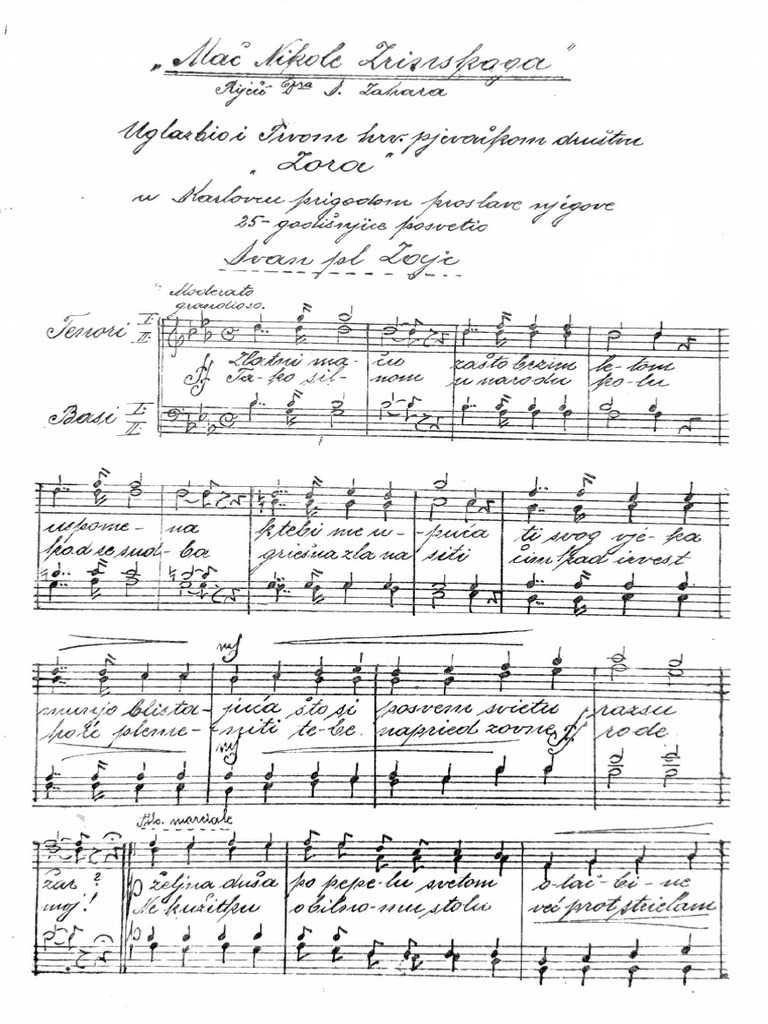 „Mač Nikole Zrinskoga"
Riječi Dra A. Zahara
Uglazbio i Prvom hrv. pjevačkom društvu
„Zora"
u Karlovcu prigodom proslave njegove
25-godišnjice posvetio
Ivan pl Zajc
Moderato
grandioso.
Tenori I. II.
Zlatni ma- ču zašto bezim le- tom
ff Ta- ko sil- nom u narodu ko- lu
Basi I. II.
uspome- na k tebi me u- puća ti svog vje- ka
kad se sud- ba griešna zla na- siti
mf
munjo blista- juća što si posvem svietu razsu
hoti pleme- niti te- be napried zovne ff ro de
mf
Allo. marciale
žar? željna duša po pepelu svetom o- tač- bi- ne
moj! Ne k užitku obilno- mu stolu već prot strielam